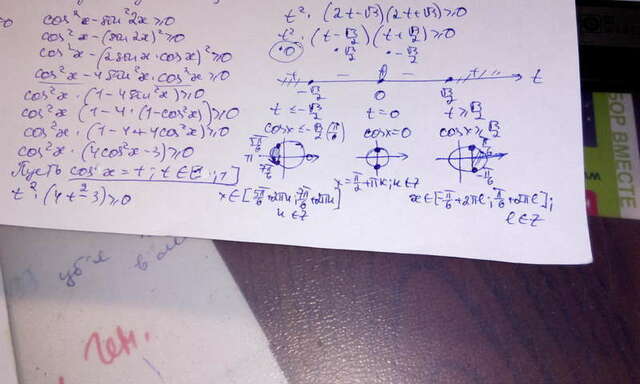 cos²x - sin²2x ≥ 0
cos²x - (sin 2x)² ≥ 0
cos²x - (2sinx · cosx)² ≥ 0
cos²x - 4sin²x · cos²x ≥ 0
cos²x · (1 - 4sin²x) ≥ 0
cos²x · (1 - 4 · (1 - cos²x)) ≥ 0
cos²x · (1 - 4 + 4cos²x) ≥ 0
cos²x · (4cos²x - 3) ≥ 0
Пусть cos x = t, t ∈ [-1; 1]
t² · (4t² - 3) ≥ 0
t² · (2t - √3)(2t + √3) ≥ 0
t² · (t - √3/2)(t + √3/2) ≥ 0
0 √3/2 -√3/2
- - t
-√3/2 0 √3/2
t ≤ -√3/2 t = 0 t ≥ √3/2
cosx ≤ -√3/2 (π/6) cosx = 0 cosx ≥ √3/2
5π/6 π 7π/6 0 π/6 -π/6
x = π/2 + πk; k ∈ Z
x ∈ [5π/6 + 2πk; 7π/6 + 2πk] x ∈ [-π/6 + 2πl; π/6 + 2πl];
k ∈ Z l ∈ Z
БОР ВМЕСТЕ